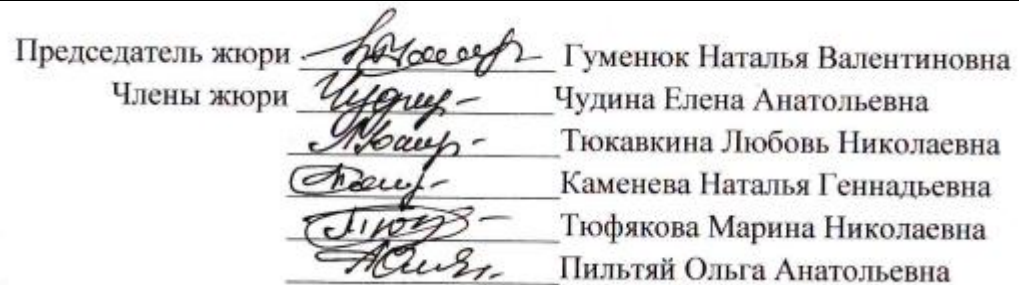 Председатель жюри Гуменюк Наталья Валентиновна
Члены жюри Чудина Елена Анатольевна
Тюкавкина Любовь Николаевна
Каменева Наталья Геннадьевна
Тюфякова Марина Николаевна
Пильтяй Ольга Анатольевна